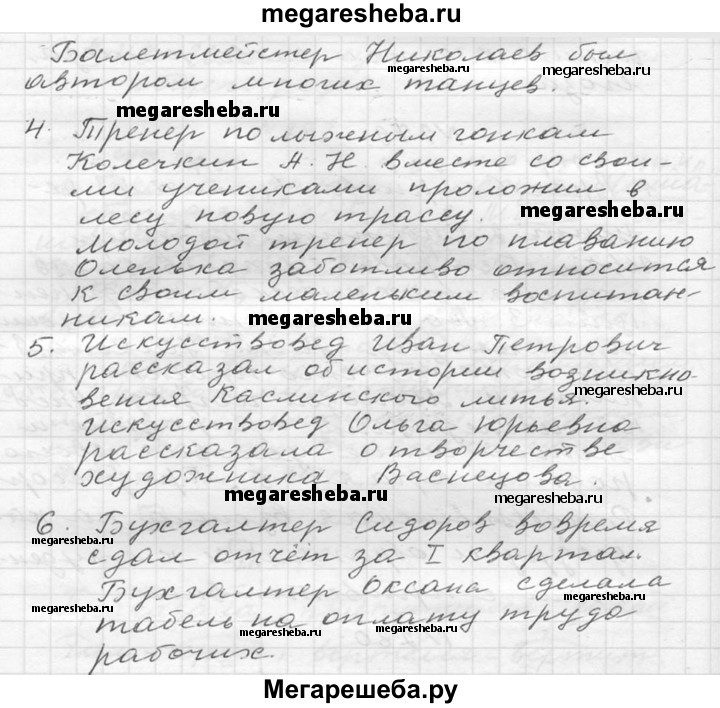 megaresheba.ru
Балетмейстер Николаев был
megaresheba.ru megaresheba.ru
автором многих танцев.
megaresheba.ru
4. Тренер по лыжным гонкам
Колечкин А. Н. вместе со свои-
ми учениками проложил в
лесу новую трассу.
megaresheba.ru
Молодой тренер по плаванию
Оленька заботливо относится
к своим маленьким воспитан-
никам.
megaresheba.ru
5. Искусствовед Иван Петрович
рассказал об истории возникно-
вения Каслинского литья.
megaresheba.ru megaresheba.ru
Искусствовед Ольга Юрьевна
рассказала о творчестве
художника Васнецова.
megaresheba.ru megaresheba.ru
6. Бухгалтер Сидоров вовремя
megaresheba.ru
сдал отчёт за I квартал.
Бухгалтер Оксана сделала
megaresheba.ru
табель на оплату труда
megaresheba.ru megaresheba.ru
рабочих.
Мегарешеба.ру